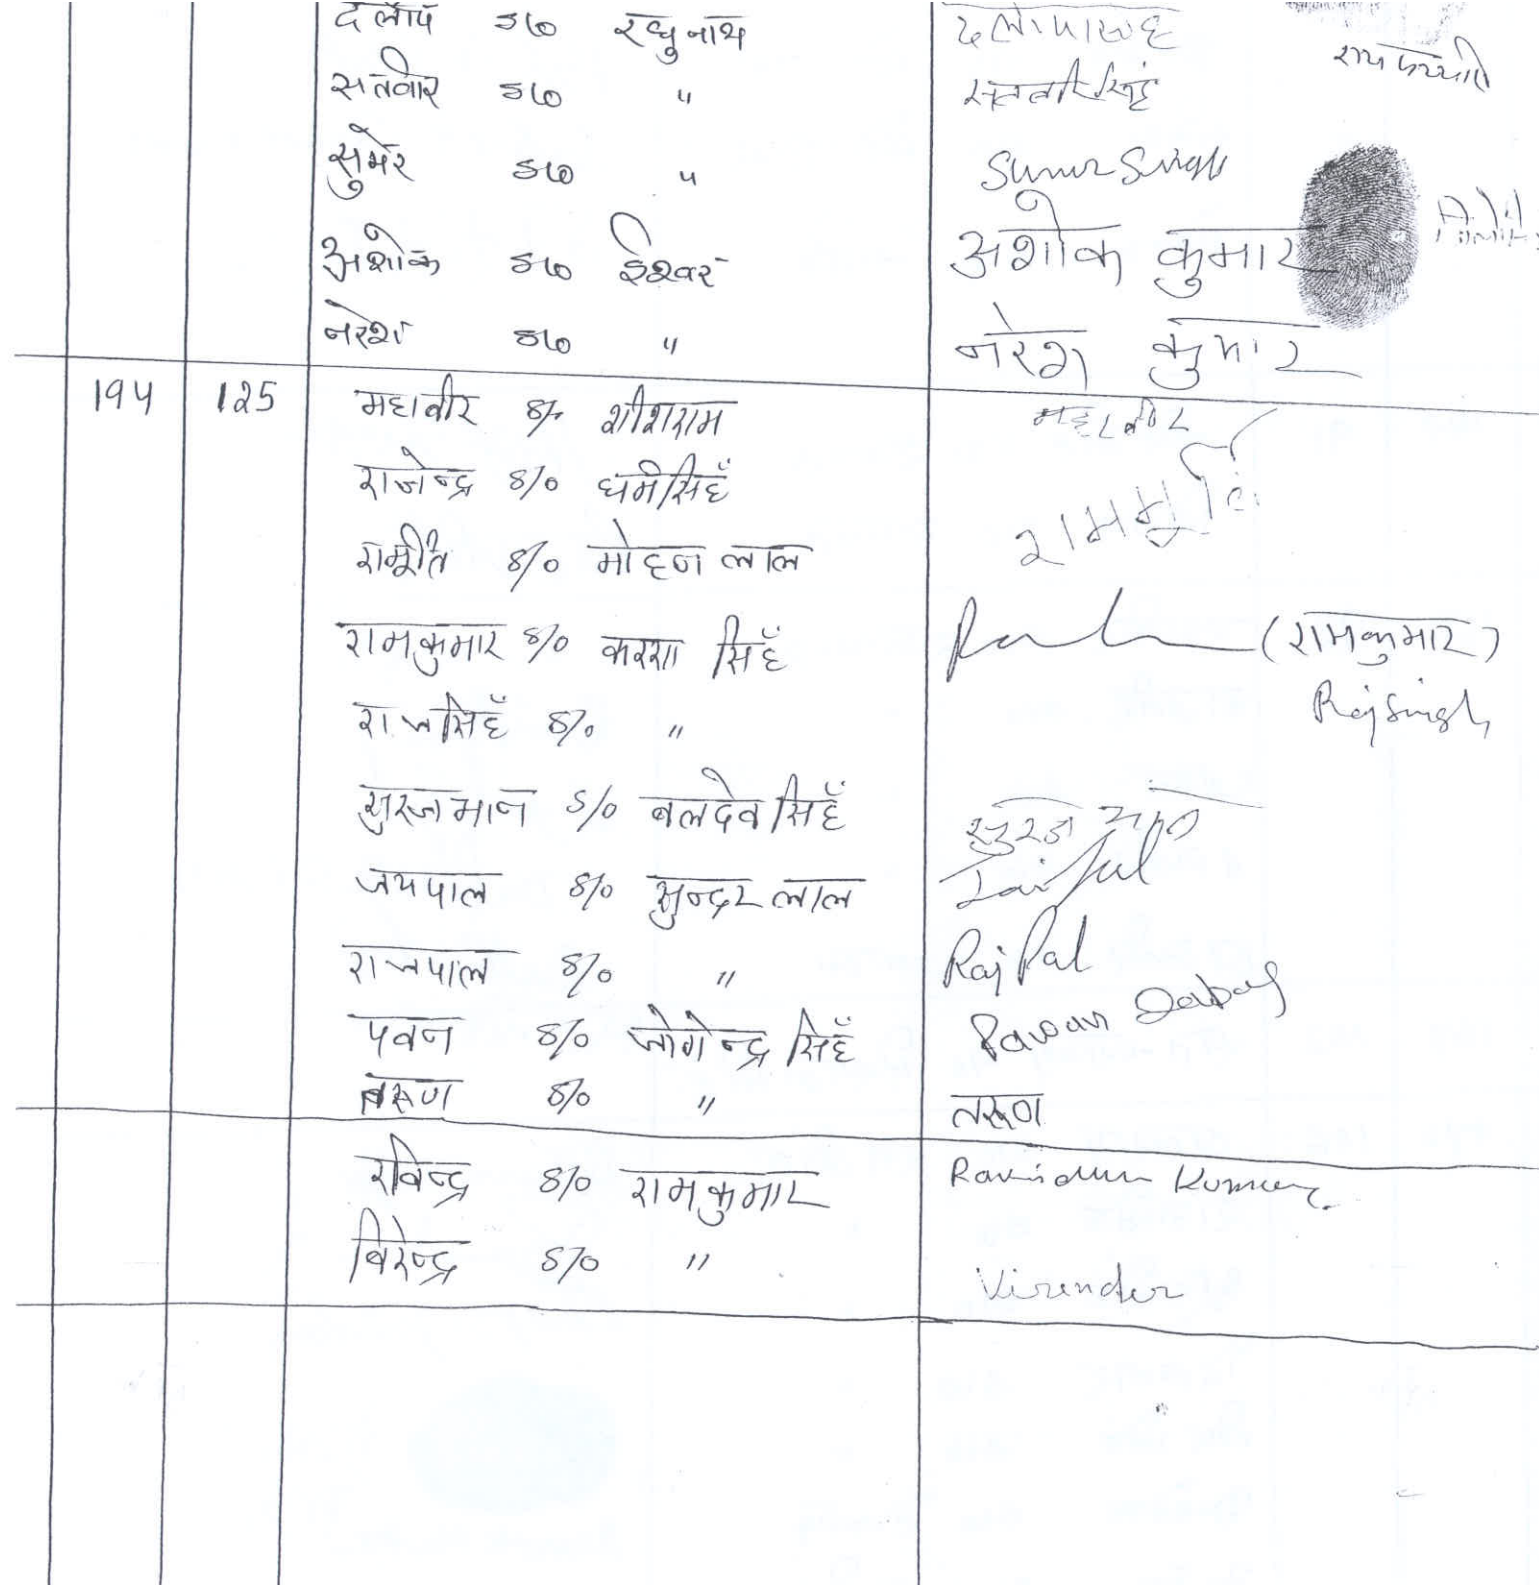 दलीप S/o रघुनाथ
सतवीर S/o " सतवीर सिंह
सुमेर S/o " Sumer Singh
अशोक S/o ईश्वर अशोक कुमार
नरेश S/o " नरेश कुमार
194 125 महावीर S/o शीशराम महावीर
राजेन्द्र S/o धर्मसिहँ
S/o मोहन लाल
रामकुमार S/o सिहँ (रामकुमार)
राजसिहँ S/o " Raj Singh
सुरजमान S/o बलदेव सिहँ सुरज मान
जयपाल S/o सुन्दर लाल Jaipal
राजपाल S/o " Raj Pal
पवन S/o जोगेन्द्र सिहँ Pawan Dabas
तरूण S/o " तरूण
रविन्द्र S/o रामकुमार Ravinder Kumar
विरेन्द्र S/o " Virender